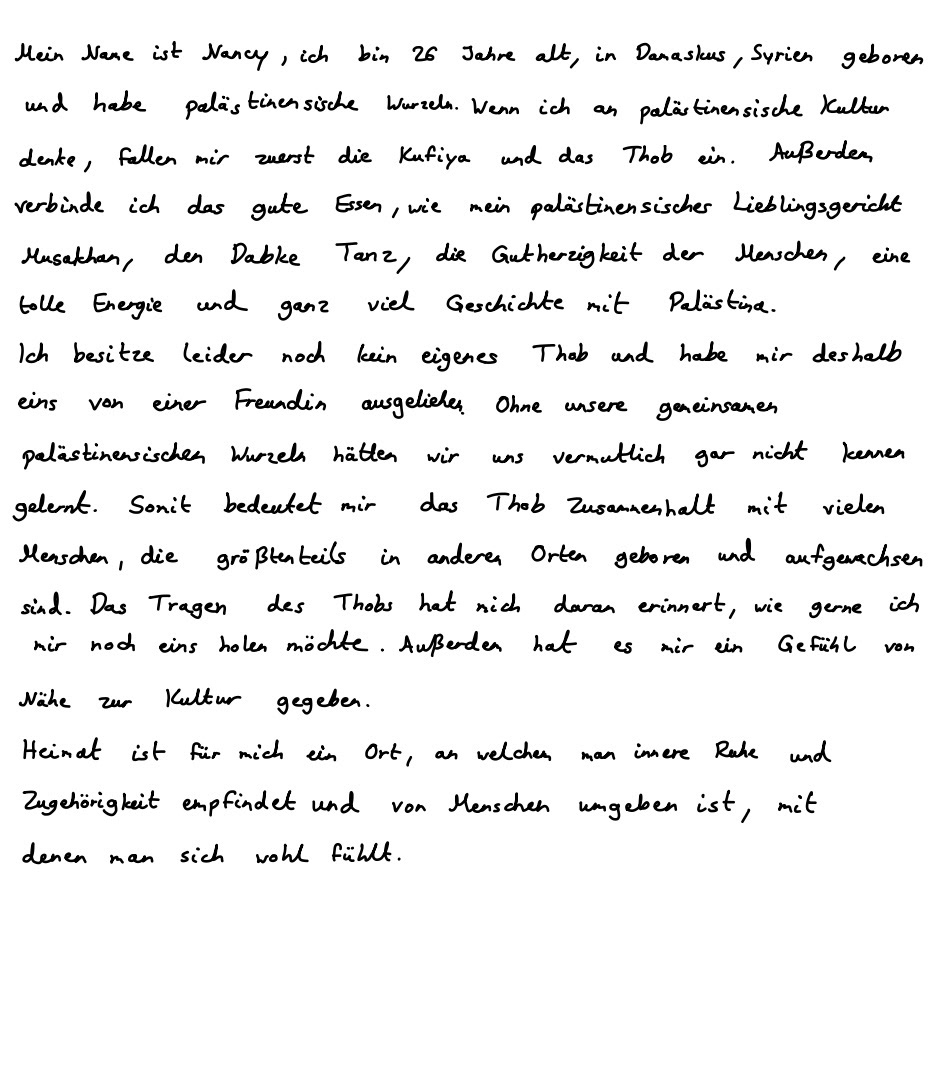 Mein Name ist Nancy, ich bin 26 Jahre alt, in Damaskus, Syrien geboren
und habe palästinensische Wurzeln. Wenn ich an palästinensische Kultur
denke, fallen mir zuerst die Kufiya und das Thob ein. Außerdem
verbinde ich das gute Essen, wie mein palästinensisches Lieblingsgericht
Musakhan, den Dabke Tanz, die Gutherzigkeit der Menschen, eine
tolle Energie und ganz viel Geschichte mit Palästina.
Ich besitze leider noch kein eigenes Thob und habe mir deshalb
eins von einer Freundin ausgeliehen. Ohne unsere gemeinsamen
palästinensischen Wurzeln hätten wir uns vermutlich gar nicht kennen
gelernt. Somit bedeutet mir das Thob Zusammenhalt mit vielen
Menschen, die größtenteils in anderen Orten geboren und aufgewachsen
sind. Das Tragen des Thobs hat mich daran erinnert, wie gerne ich
mir noch eins holen möchte. Außerdem hat es mir ein Gefühl von
Nähe zur Kultur gegeben.
Heimat ist für mich ein Ort, an welchem man innere Ruhe und
Zugehörigkeit empfindet und von Menschen umgeben ist, mit
denen man sich wohl fühlt.